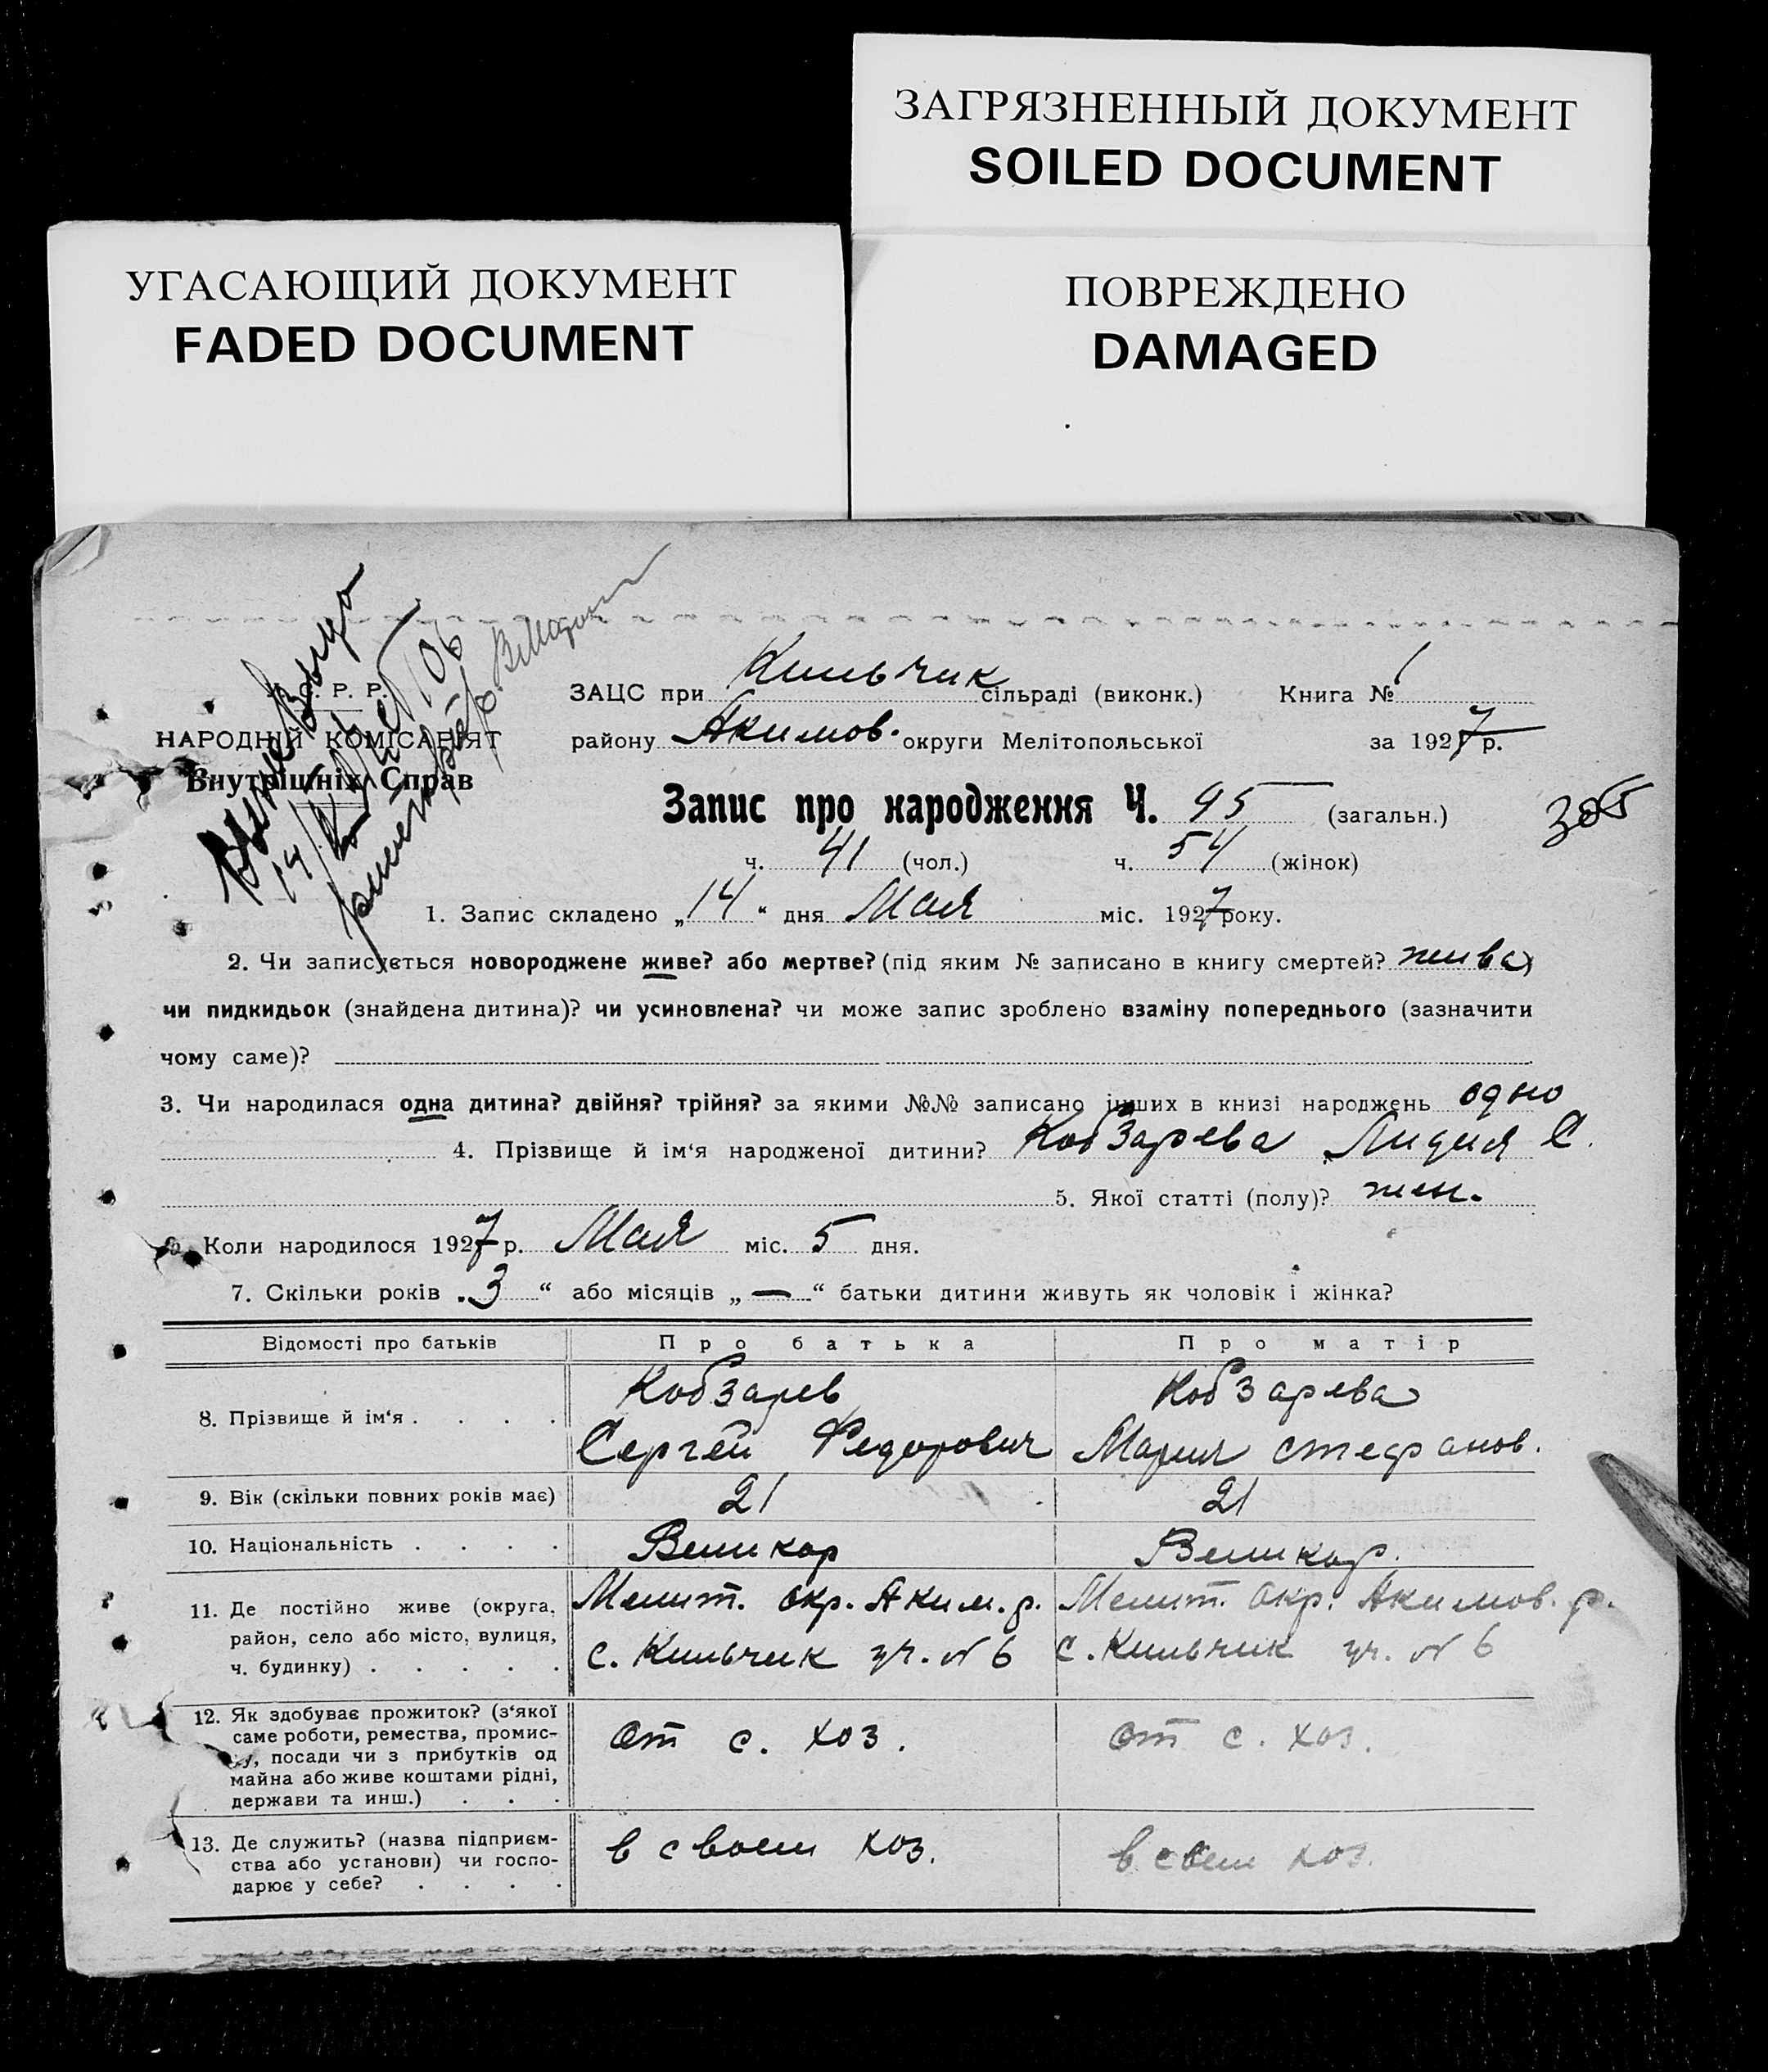 ЗАГРЯЗНЕННЫЙ ДОКУМЕНТ
SOILED DOCUMENT
УГАСАЮЩИЙ ДОКУМЕНТ
FADED DOCUMENT
ПОВРЕЖДЕНО
DAMAGED
Р. Р.
НАРОДНІЙ КОМІСАРІЯТ
Внутрішніх Справ
106
ЗАЦС при Кильчик сільраді (виконк.) Книга № 1
району Акимов. округи Мелітопольської за 1927 р.
Запис про народження Ч. 95 (загальн.)
305
ч. 41 (чол.) ч. 54 (жінок)
1. Запис складено „14“ дня Мая міс. 1927 року.
2. Чи записується новороджене живе? або мертве? (під яким № записано в книгу смертей? жива)
чи пидкидьок (знайдена дитина)? чи усиновлена? чи може запис зроблено взаміну попереднього (зазначити
чому саме)?
3. Чи народилася одна дитина? двійня? трійня? за якими №№ записано інших в книзі народжень одно
4. Прізвище й ім‘я народженої дитини? Кобзарева Лидия С.
5. Якої статті (полу)? жен.
6. Коли народилося 1927 р. Мая міс. 5 дня.
7. Скільки років „3“ або місяців „—“ батьки дитини живуть як чоловік і жінка?
Відомості про батьків Про батька Про матір
8. Прізвище й ім‘я . . . . Кобзарев Кобзарева
Сергей Федорович Мария Стефанов.
9. Вік (скільки повних років має) 21 21
10. Національність . . . . Великор Великор.
11. Де постійно живе (округа, Мелит. окр. Аким. р. Мелит. окр. Акимов. р.
район, село або місто, вулиця, с. Кильчик уч. № 6 с. Кильчик уч. № 6
ч. будинку) . . . . .
12. Як здобуває прожиток? (з‘якої
саме роботи, ремества, промис- от с. хоз. от с. хоз.
посади чи з прибутків од
майна або живе коштами рідні,
держави та инш.) . . .
13. Де служить? (назва підприєм- в своем хоз. в свем хоз.
ства або установи) чи госпо-
дарює у себе? . . . .